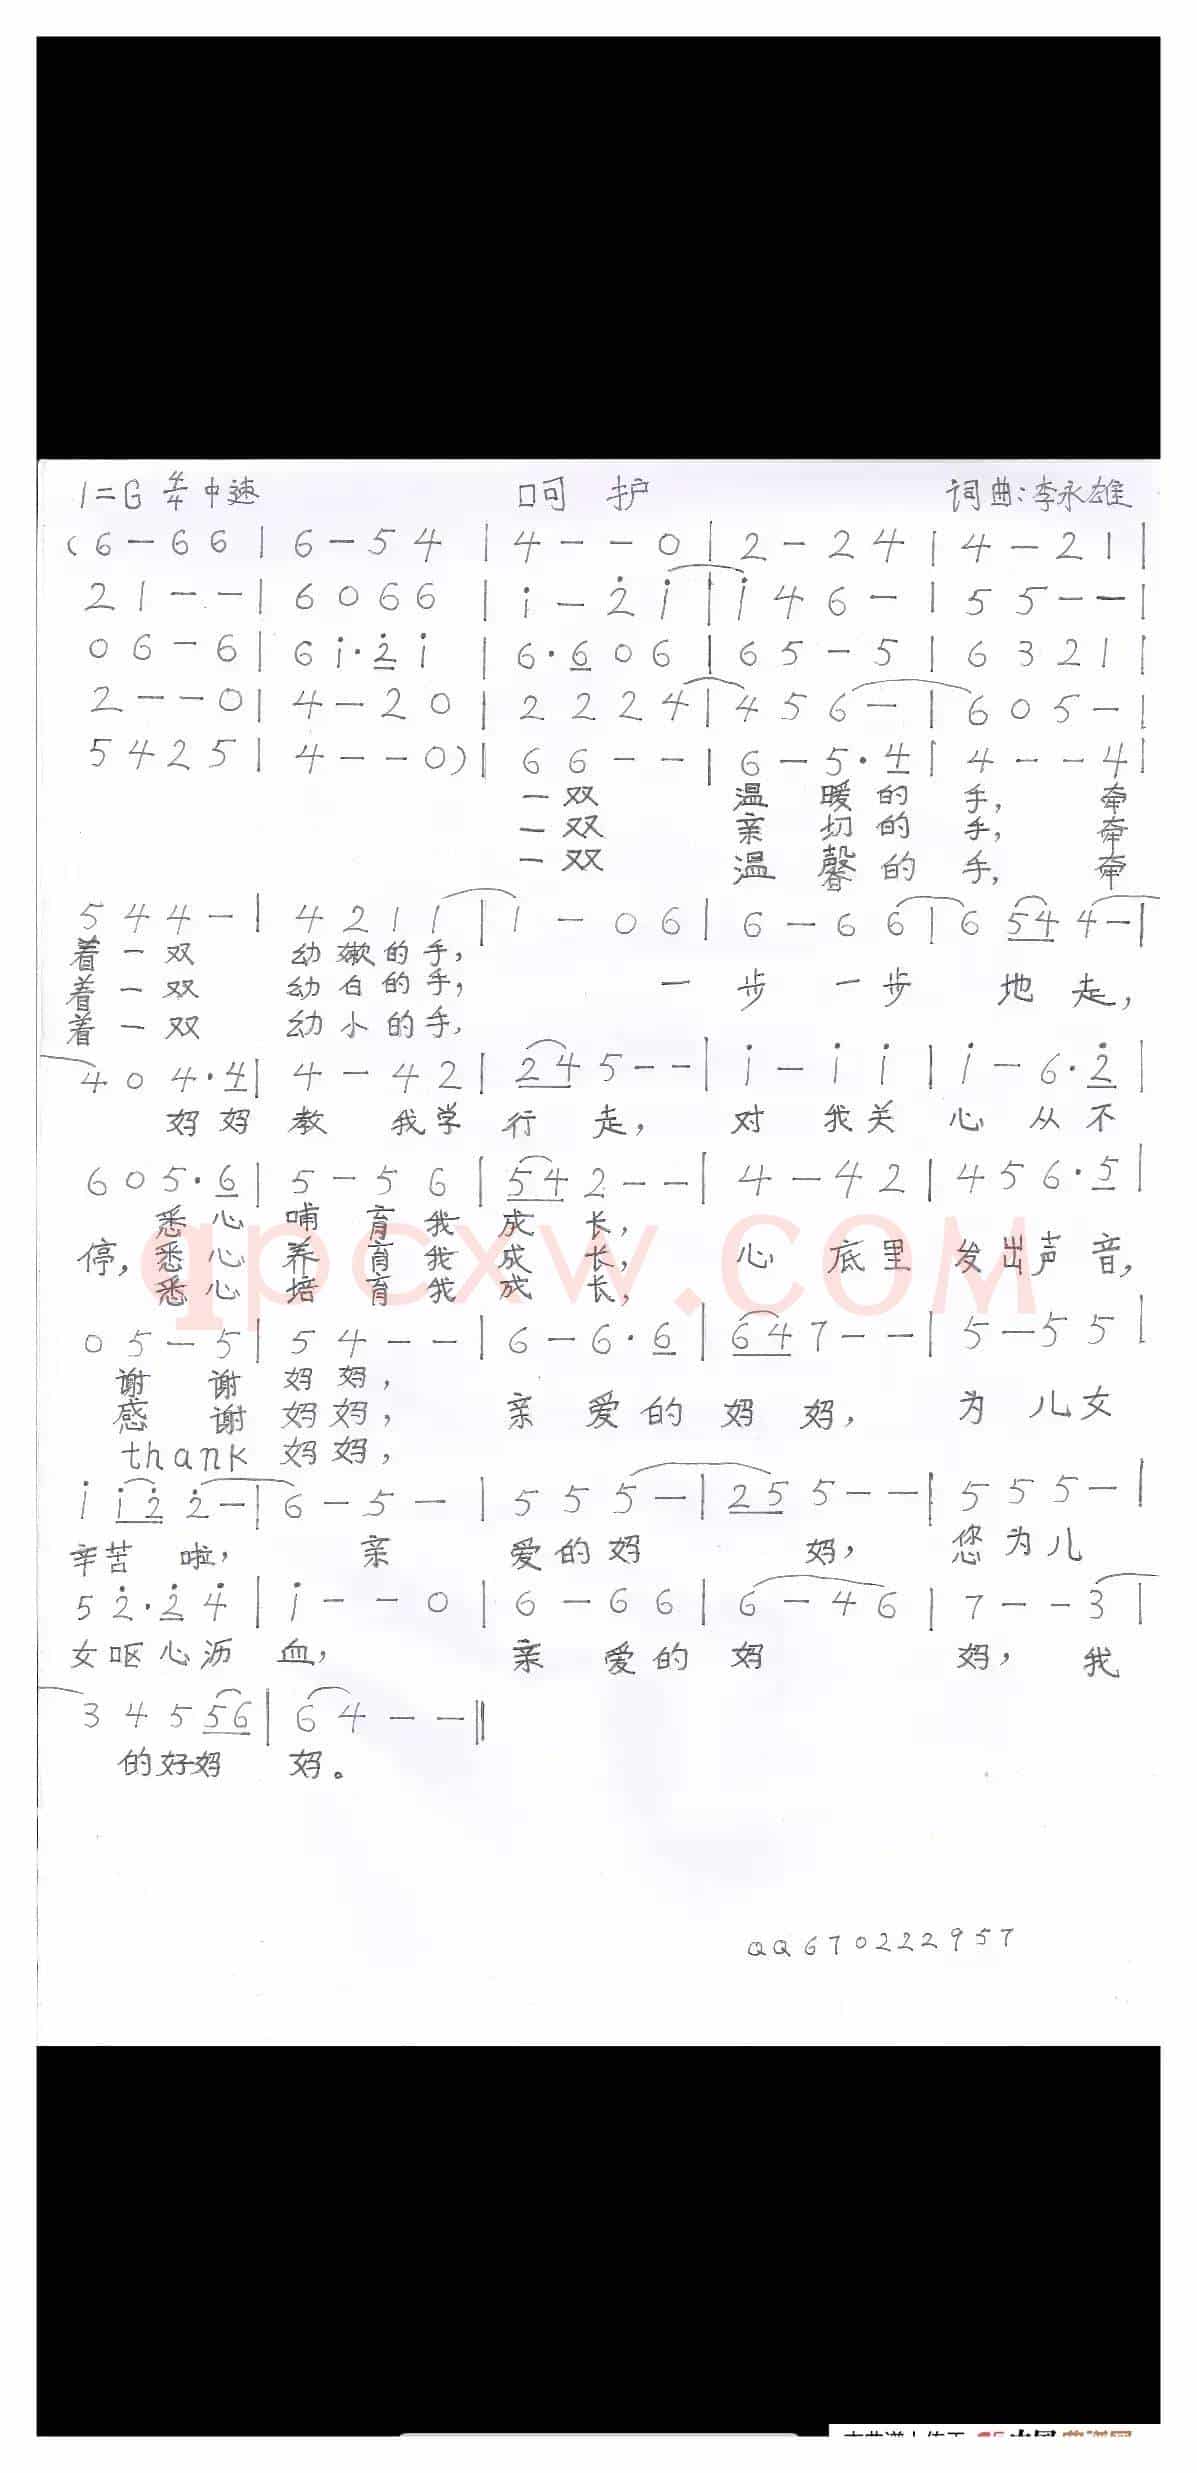 1=G 4/4 中速 呵 护 词曲:李永雄
(6-66|6-54|4--0|2-24|4-21|
21--|6066|i-2̇i|i46-|55--|
06-6|6i·2̇i|6·606|65-5|6321|
2--0|4-20|2224|456-|605-|
5425|4--0)|66--|6-5·4|4--4|
一双 温 暖的 手, 牵
一双 亲 切的 手, 牵
一双 温 馨的 手, 牵
544-|4211|1-06|6-66|6544-|
着一双 幼嫩的手,
着一双 幼白的手, 一 步 一步 地 走,
着一双 幼小的手,
404·4|4-42|245--|i-ii|i-6·2̇|
妈妈 教 我学 行 走, 对 我关 心 从不
605·6|5-56|542--|4-42|456·5|
悉心 哺 育我 成 长,
停,悉心 养 育我 成 长, 心 底里 发出声音,
悉心 培 育我 成 长,
05-5|54--|6-6·6|647--|5-55|
谢 谢 妈妈,
感 谢 妈妈, 亲 爱的 妈 妈, 为 儿女
thank 妈妈,
ii2̇2̇-|6-5-|555-|255--|555-|
辛苦 啦, 亲 爱的妈 妈, 您为儿
52̇·2̇4̇|i--0|6-66|6-46|7--3|
女呕心沥 血, 亲 爱的 妈 妈, 我
34556|64--‖
的好妈 妈。
qpcxw.COM
QQ670222957